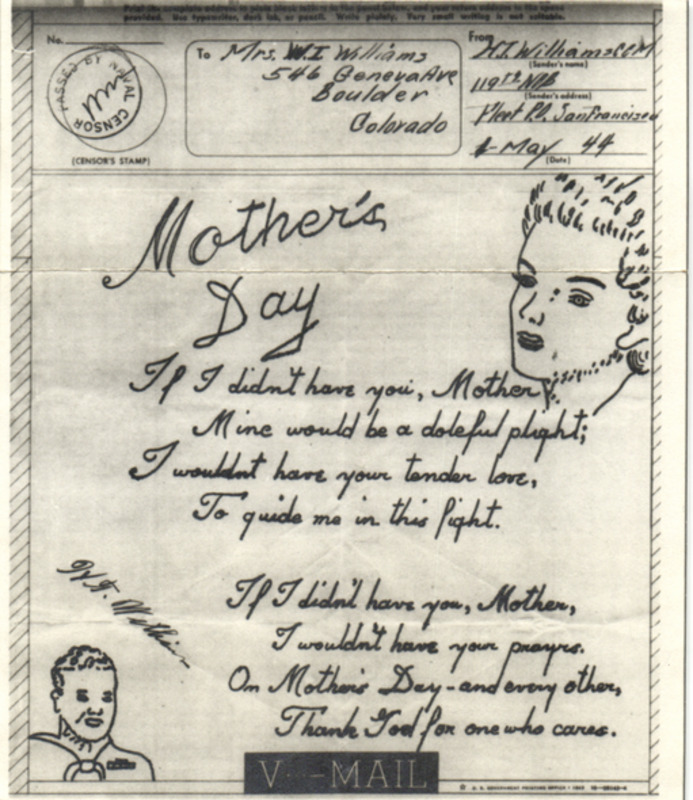 provided. Use typewriter, dark ink, or pencil. Write plainly. Very small writing is not suitable.
No.
PASSED BY NAVAL CENSOR
(CENSOR'S STAMP)
To Mrs. W.I Williams
546 Geneva Ave
Boulder
Colorado
From
H.I. Williams
(Sender's name)
119th NCB
(Sender's address)
Fleet P.O. San Francisco
1-May 44
(Date)
Mother's
Day
If I didn't have you, Mother
Mine would be a doleful plight;
I wouldn't have your tender love,
To guide me in this fight.
If I didn't have you, Mother,
I wouldn't have your prayrs.
On Mother's Day-and every other,
Thank God for one who cares.
V--MAIL
U. S. GOVERNMENT PRINTING OFFICE : 1943